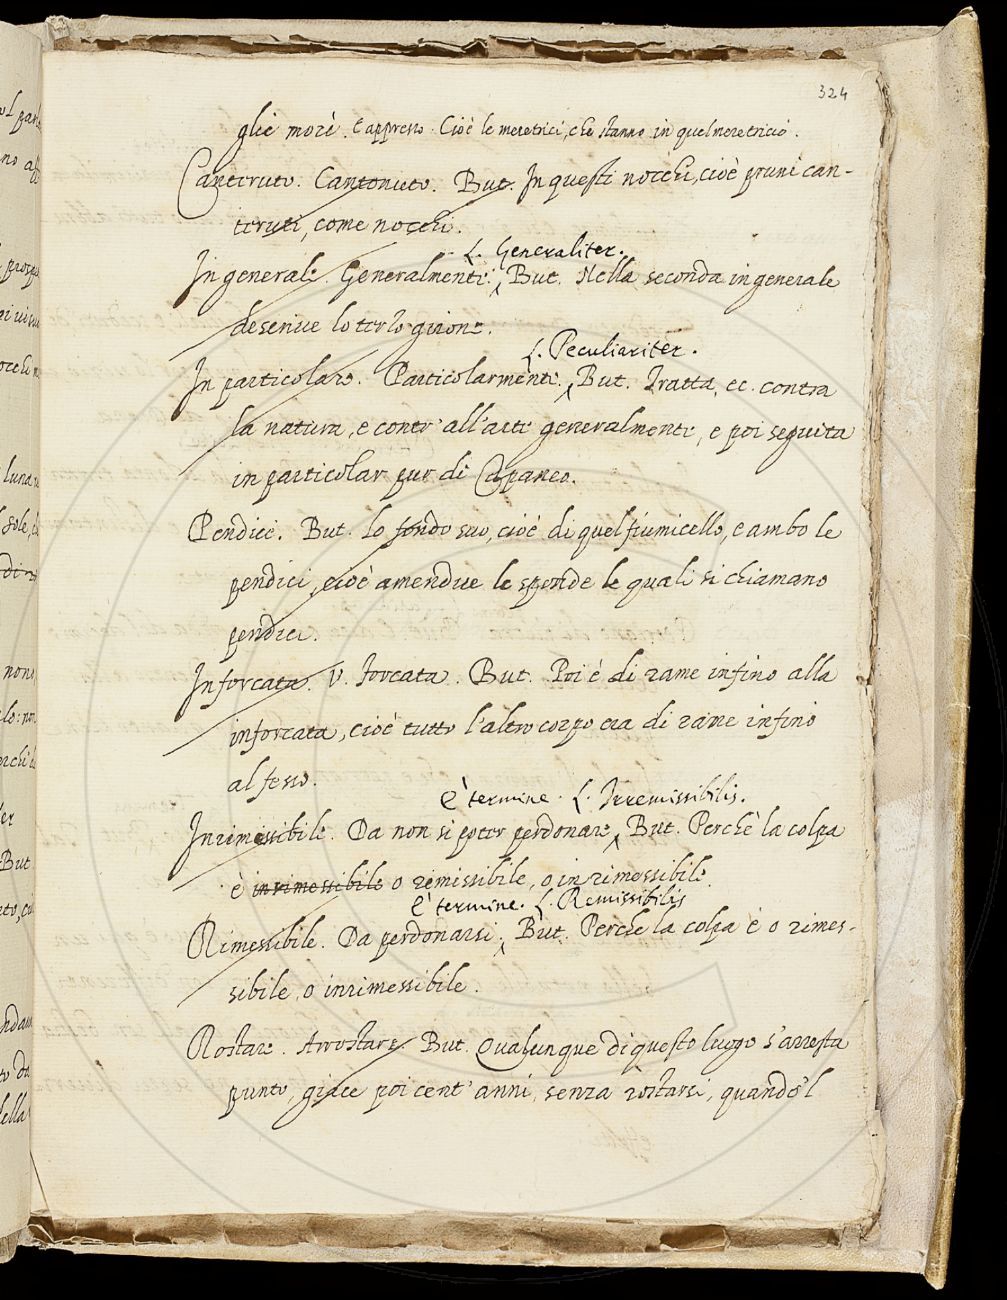 324
glie more. E appresso. Cioè le meretrici, che stanno in quel meretricio.
Canteruto. Cantonuto. But. In questi nocchi, cioè pruni can-
teruti, come nocchi.
L. Generaliter.
In generale. Generalmente. But. Nella seconda in generale
descrive lo terzo girone.
L. Peculiariter.
In particolare. Particolarmente. But. Tratta, ec. contra
la natura, e contr' all'arte generalmente, e poi seguita
in particolar pur di Capaneo.
Pendice. But. Lo fondo suo, cioè di quel fiumicello, e ambo le
pendici, cioè amendue le sponde le quali si chiamano
pendici.
Inforcata. V. forcata. But. Poi è di rame infino alla
inforcata, cioè tutto l'altro corpo era di rame infino
al fesso.
È termine. L. Irremissibilis.
Inrimessibile. Da non si poter perdonare. But. Perchè la colpa
è inrimessibile o remissibile, o inrimessibile.
È termine. L. Remissibilis
Rimessibile. Da perdonarsi. But. Perche la colpa è o rimes-
sibile, o inrimessibile.
Rostare. Arrostare. But. Qualunque di questo luogo s'arresta
punto, giace poi cent' anni, senza rostarsi, quando 'l